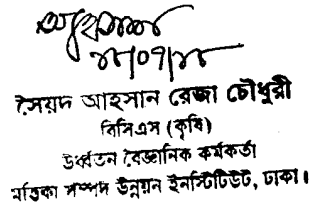 ১৮/০৭/১৮
সৈয়দ আহসান রেজা চৌধুরী
বিসিএস (কৃষি)
উর্ধ্বতন বৈজ্ঞানিক কর্মকর্তা
মৃত্তিকা সম্পদ উন্নয়ন ইনস্টিটিউট, ঢাকা।